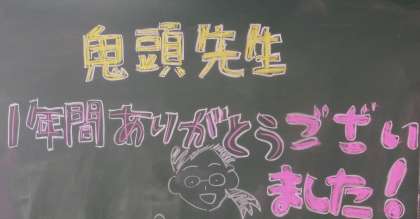 鬼頭先生
1年間ありがとうござい
ました!